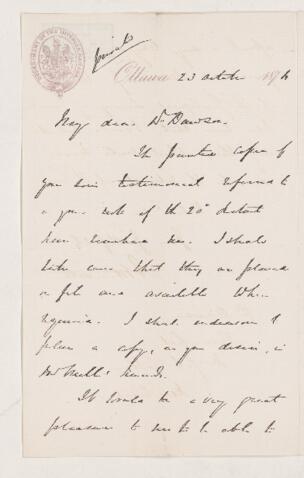 Private
Ottawa 23 October 1876
My dear Dr Dawson.
The printed copies of
your son's testimonial referred to
in your note of the 20th instant
have reached me. I shall
take care that they are placed
on file and available when
required. I shall endeavour to
place a copy, as you desire, in
Mr Mills' hands.
It would be a very great
pleasure to me to be able to